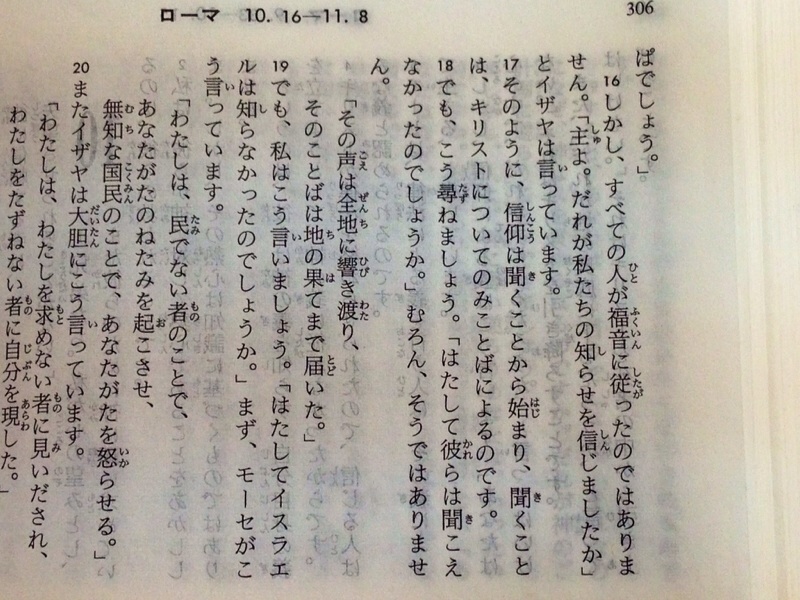 306
ローマ 10. 16—11. 8
ぱでしょう。」
16しかし、すべての人が福音に従ったのではありま
せん。「主よ。だれが私たちの知らせを信じましたか」
とイザヤは言っています。
17そのように、信仰は聞くことから始まり、聞くこと
は、キリストについてのみことばによるのです。
18でも、こう尋ねましょう。「はたして彼らは聞こえ
なかったのでしょうか。」むろん、そうではありませ
ん。
「その声は全地に響き渡り、
そのことばは地の果てまで届いた。」
19でも、私はこう言いましょう。「はたしてイスラエ
ルは知らなかったのでしょうか。」まず、モーセがこ
う言っています。
「わたしは、民でない者のことで、
あなたがたのねたみを起こさせ、
無知な国民のことで、あなたがたを怒らせる。」
20またイザヤは大胆にこう言っています。
「わたしは、わたしを求めない者に見いだされ、
わたしをたずねない者に自分を現した。」